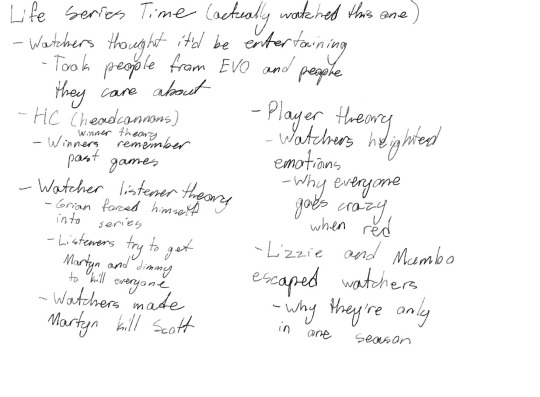 Life Series Time (actually watched this one)
- Watchers thought it'd be entertaining
- Took people from EVO and people
they care about
- HC (headcannons)
winner theory
- Winners remember
past games
- Watcher listener theory
- Grian forced himself
into series
- Listeners try to get
Martyn and Jimmy
to kill everyone
- Watchers made
Martyn kill Scott
- Player theory
- Watchers heighted
emotions
- Why everyone
goes crazy
when red
- Lizzie and Mumbo
escaped watchers
- Why they're only
in one season